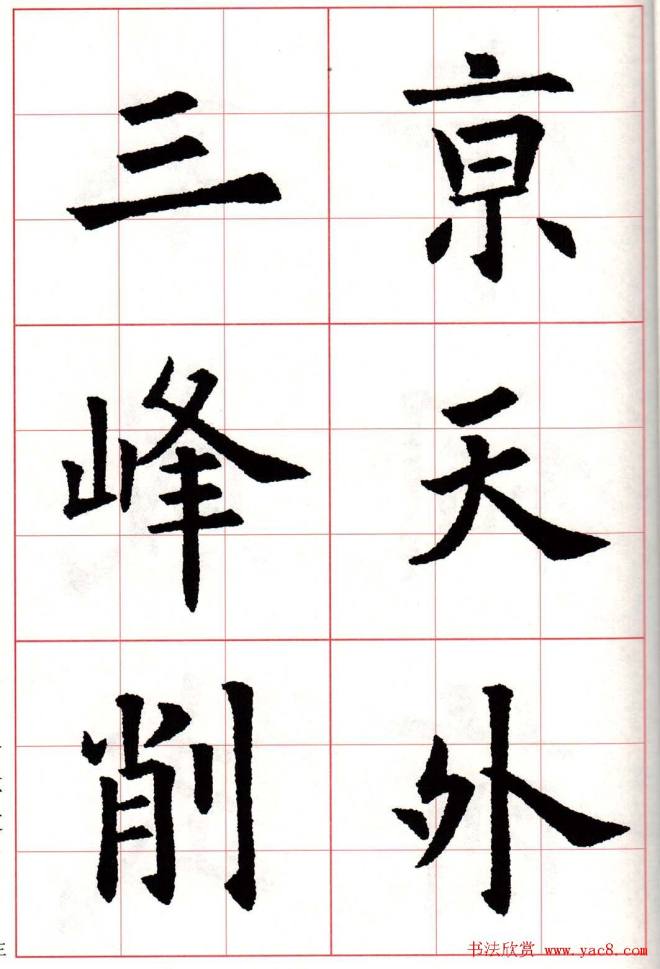 亰天外
三峰削
书法欣赏 www.yac8.com